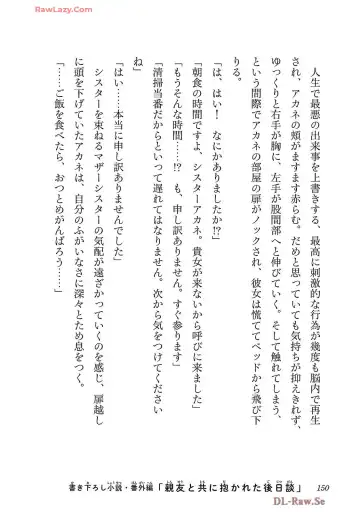 RawLazy.Com
人生で最悪の出来事を上書きする、最高に刺激的な行為が幾度も脳内で再生
され、アカネの頬がますます赤らむ。だめと思っていても気持ちが抑えきれず、
ゆっくりと右手が胸に、左手が股間部へと伸びていく。そして触れてしまう、
という間際でアカネの部屋の扉がノックされ、彼女は慌ててベッドから飛び下
りる。
「は、はい! なにかありましたか!?」
「朝食の時間ですよ、シスターアカネ。貴女が来ないから呼びに来ました」
「もうそんな時間……!? も、申し訳ありません。すぐ参ります」
「清掃当番だからといって遅れてはなりません。次から気をつけてください
ね」
「はい……本当に申し訳ありませんでした」
シスターを束ねるマザーシスターの気配が遠ざかっていくのを感じ、扉越し
に頭を下げていたアカネは、自分のふがいなさに深々とため息をつく。
「……ご飯を食べたら、おつとめがんばろう……」
書き下ろし小説・番外編「親友と共に抱かれた後日談」
150
DL-Raw.Se